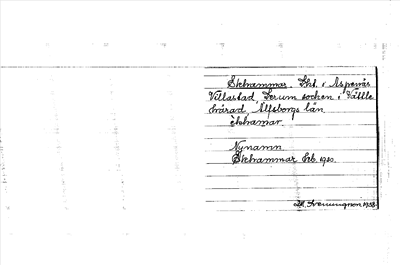 Ekhammar. Lht. i Aspenäs
Villastad Lerum socken i Vättle
härad Älfsborgs län.
èkhamar
Nynamn.
Ekhammar Lb. 1910.
M. Svenungson 1938